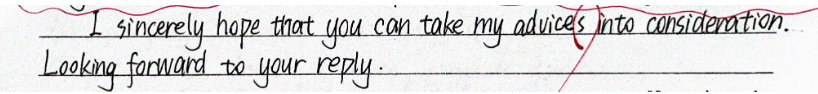 I sincerely hope that you can take my advices into consideration.
Looking forward to your reply.